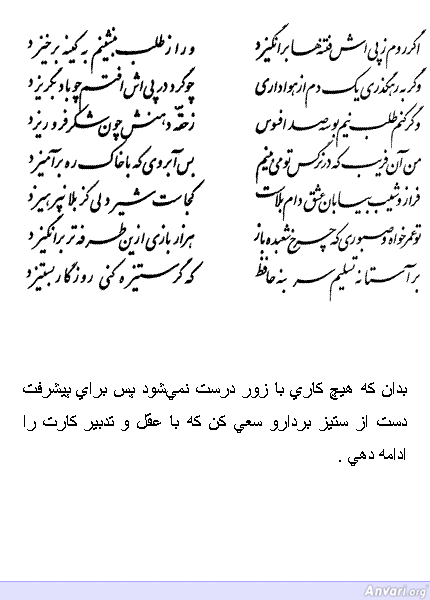 اگر روم ز پی اش فتنه‌ها برانگیزد ور از طلب بنشینم به کینه برخیزد
وگر به رهگذری یک دم از هواداری چو گرد در پی اش افتم چو باد بگریزد
وگر کنم طلب نیم بوسه صد افسوس ز حقه دهنش چون شکر فرو ریزد
من آن فریب که در نرگس تو می بینم بس آبروی که با خاک ره برآمیزد
فراز و شیب بیابان عشق دام بلاست کجاست شیردلی کز بلا نپرهیزد
تو عمر خواه و صبوری که چرخ شعبده باز هزار بازی ازین طرفه تر برانگیزد
بر آستانه تسلیم سر بنه حافظ که گر ستیزه کنی روزگار بستیزد
بدان که هيچ کاري با زور درست نمي‌شود پس براي پيشرفت
دست از ستيز بردارو سعي کن که با عقل و تدبير کارت را
ادامه دهي .
Anvari.org